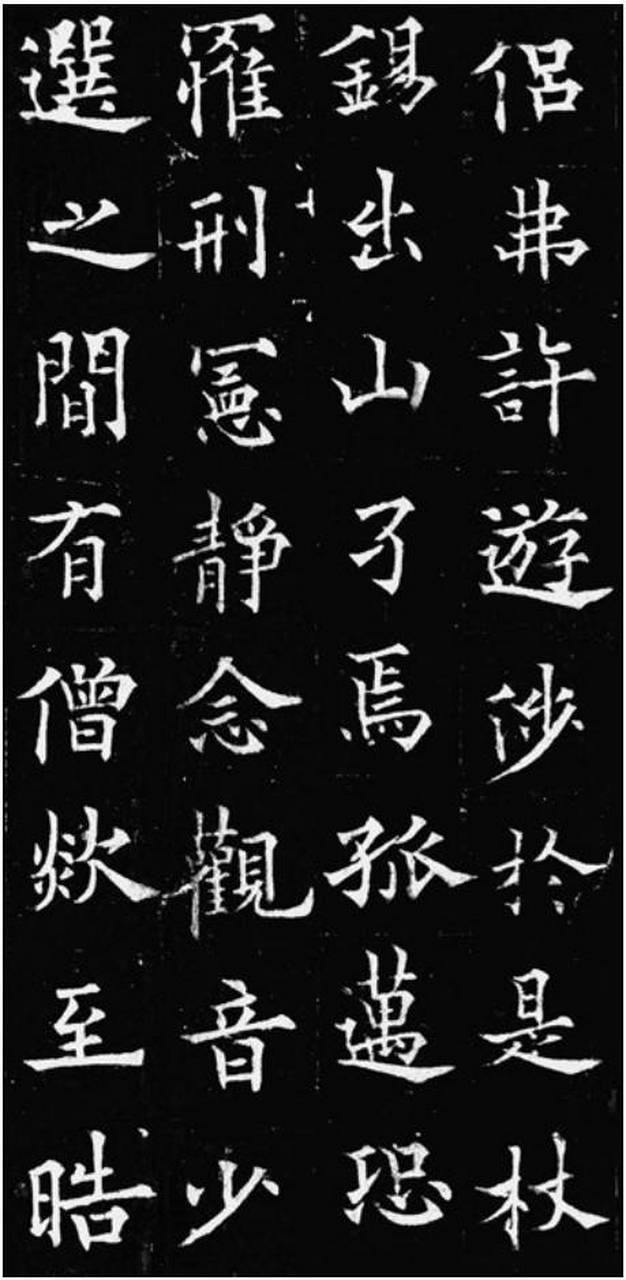 侶弗許遊涉於是杖
錫出山孑焉孤邁恐
罹刑憲靜念觀音少
選之間有僧欻至皓